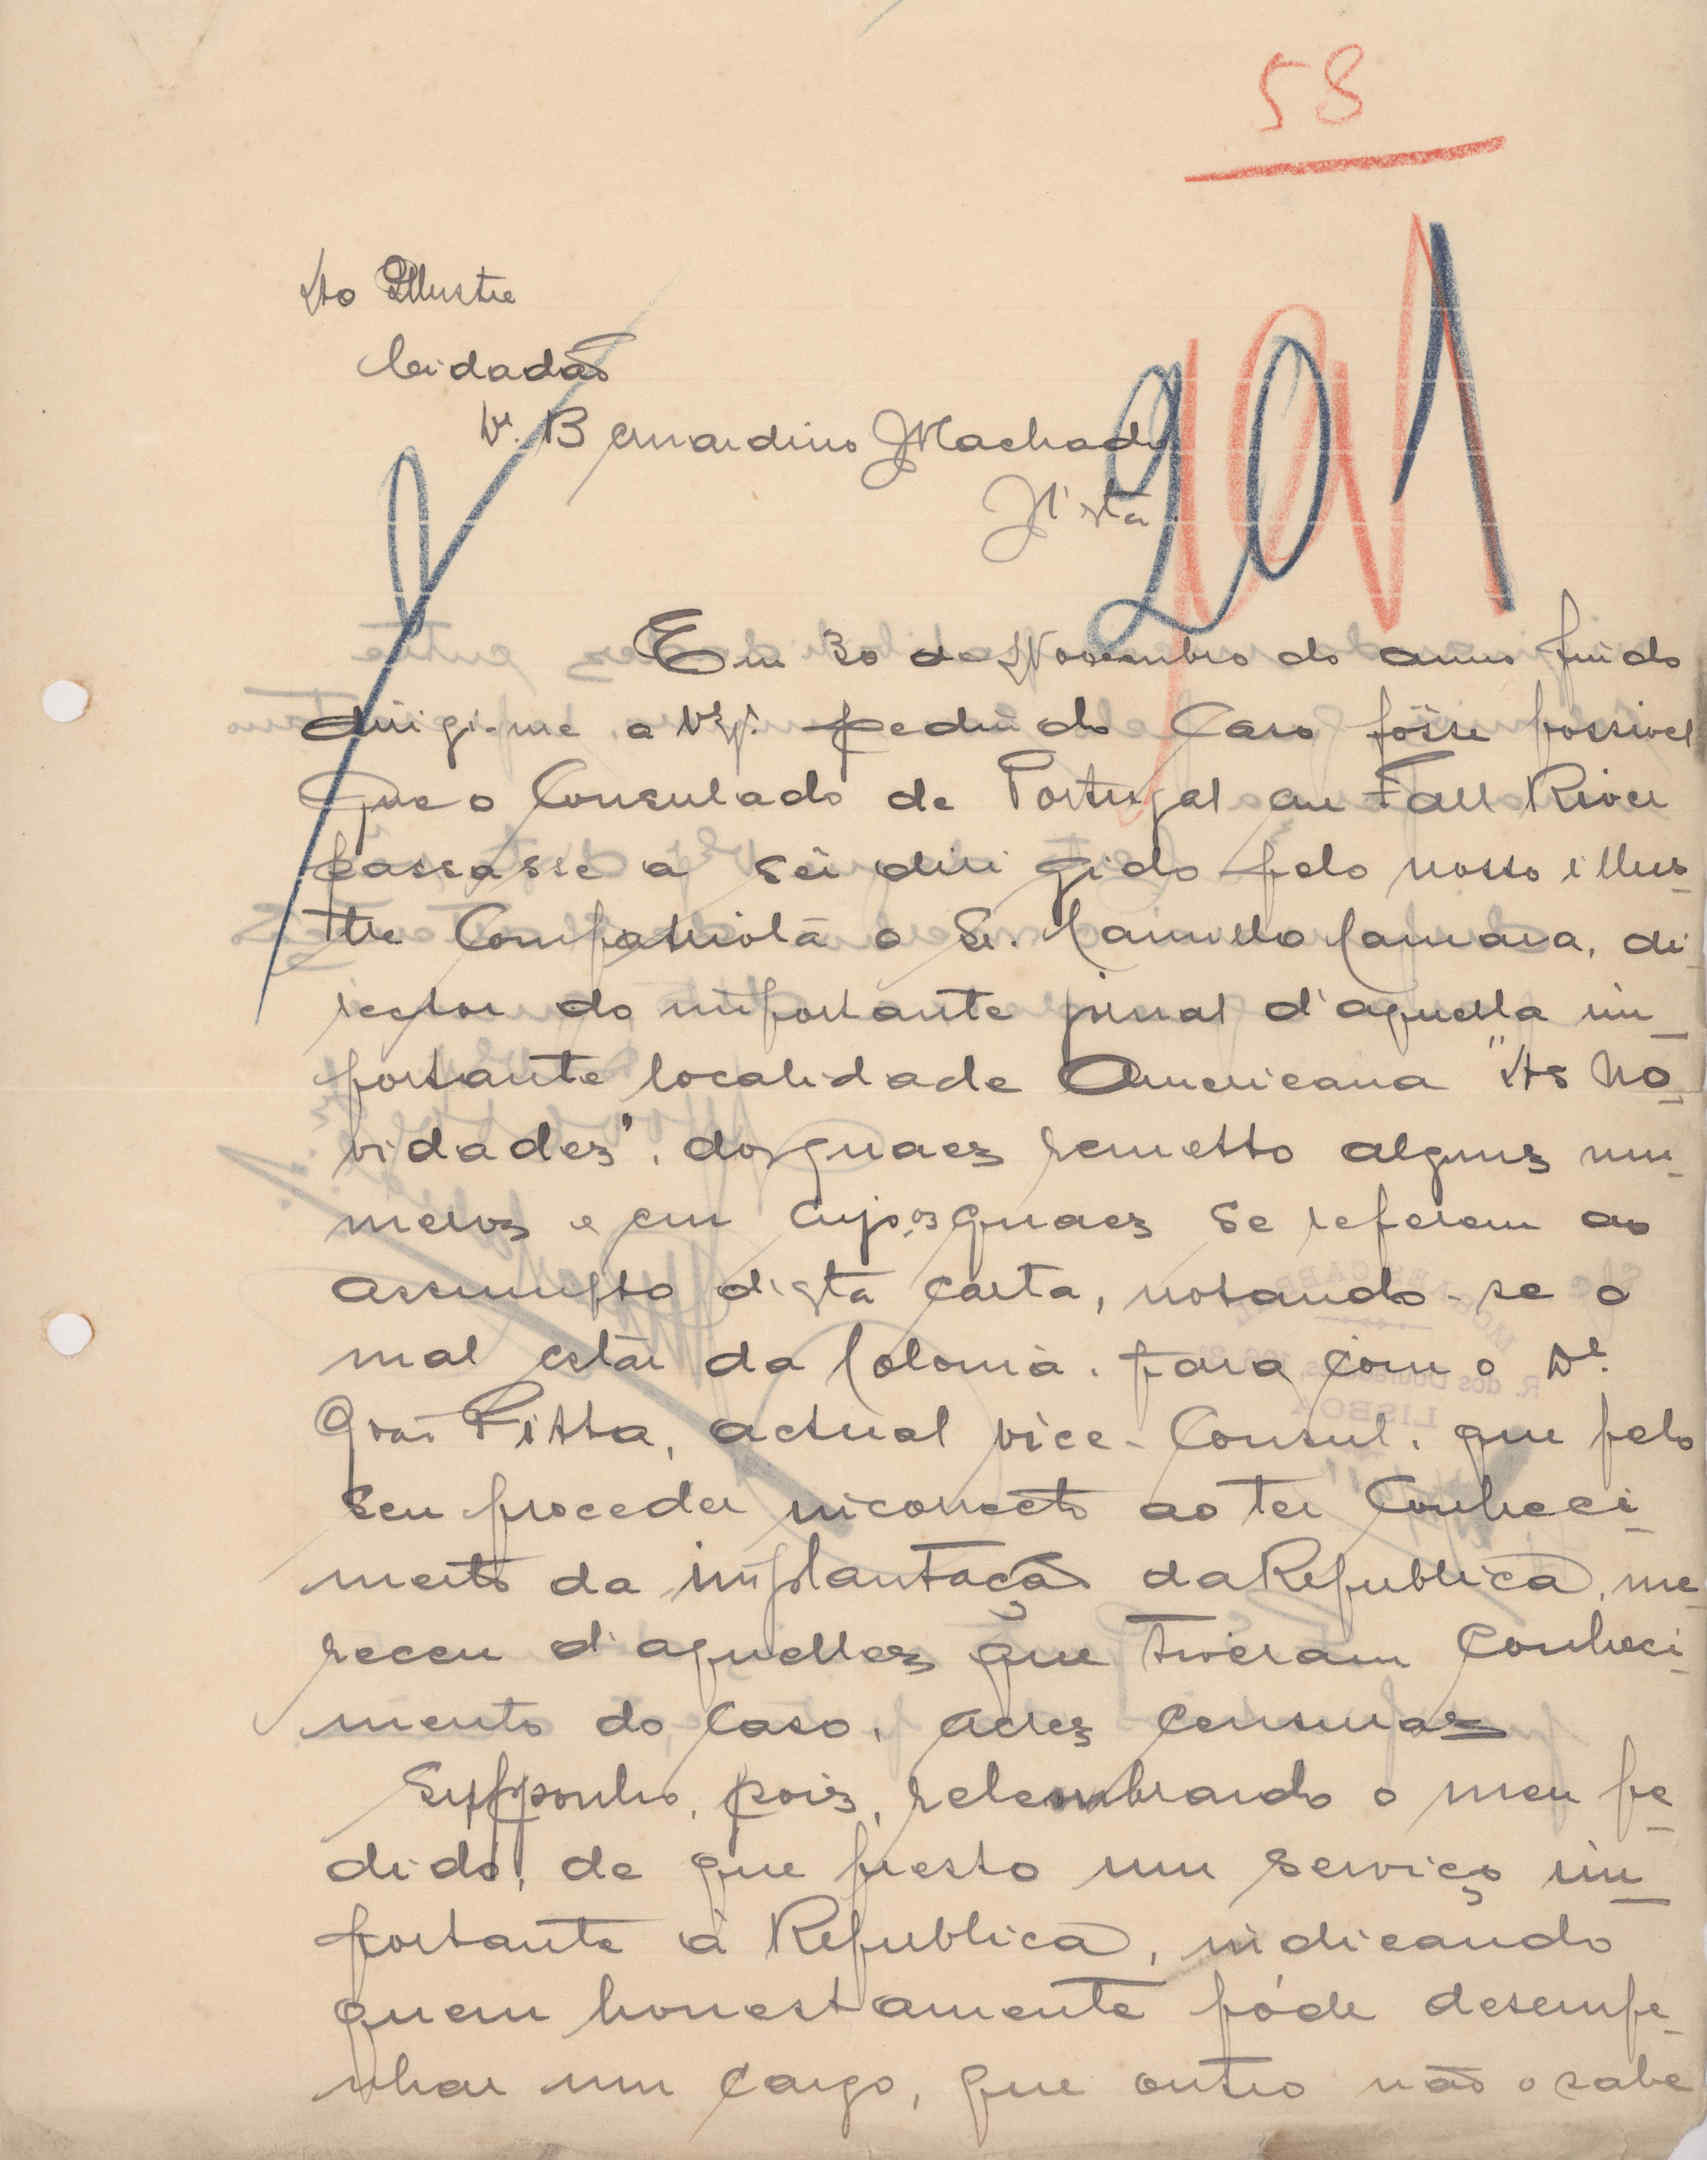 58
201
Ao Illustre
Cidadão
Dr. Bernardino Machado
N'esta
Em 30 de Novembro do anno findo
dirigi-me a V. pedindo caso fôsse possivel
que o Consulado de Portugal em Fall River
passasse a ser dirigido pelo nosso illus-
tre Compatriota o Sr. Camillo Camara, di-
rector do importante jornal d'aquella im-
portante localidade Americana "As No-
vidades", dos quaes remetto alguns nu-
meros e em cujos quaes se referem ao
assumpto d'esta carta, notando-se o
mal estar da Colonia, para com o Dr.
Pitta, actual vice-Consul, que pelo
seu proceder incorrecto ao ter Conheci-
mento da implantação da Republica, me-
receu d'aquelles que tiveram Conheci-
mento do Caso, acres censuras
Supponho, pois, relembrando o meu pe-
dido, de que presto um serviço im-
portante á Republica, indicando
quem honestamente póde desempe-
nhar um cargo, que outro não o sabe